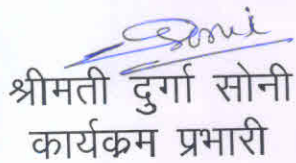 Soni
श्रीमती दुर्गा सोनी
कार्यक्रम प्रभारी